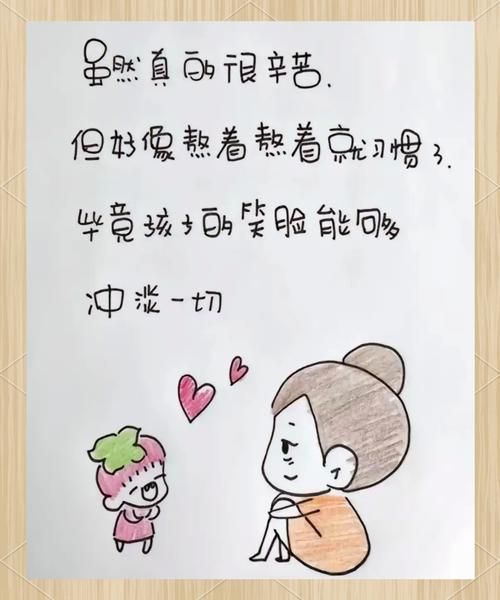 虽然真的很辛苦.
但好像熬着熬着就习惯了.
毕竟孩子的笑脸能够
冲淡一切